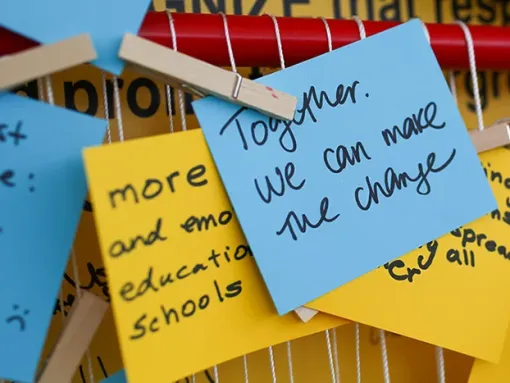 GNIZE that resp
pro
Together.
we can make
the change
more
and emo
education
schools
spread
all